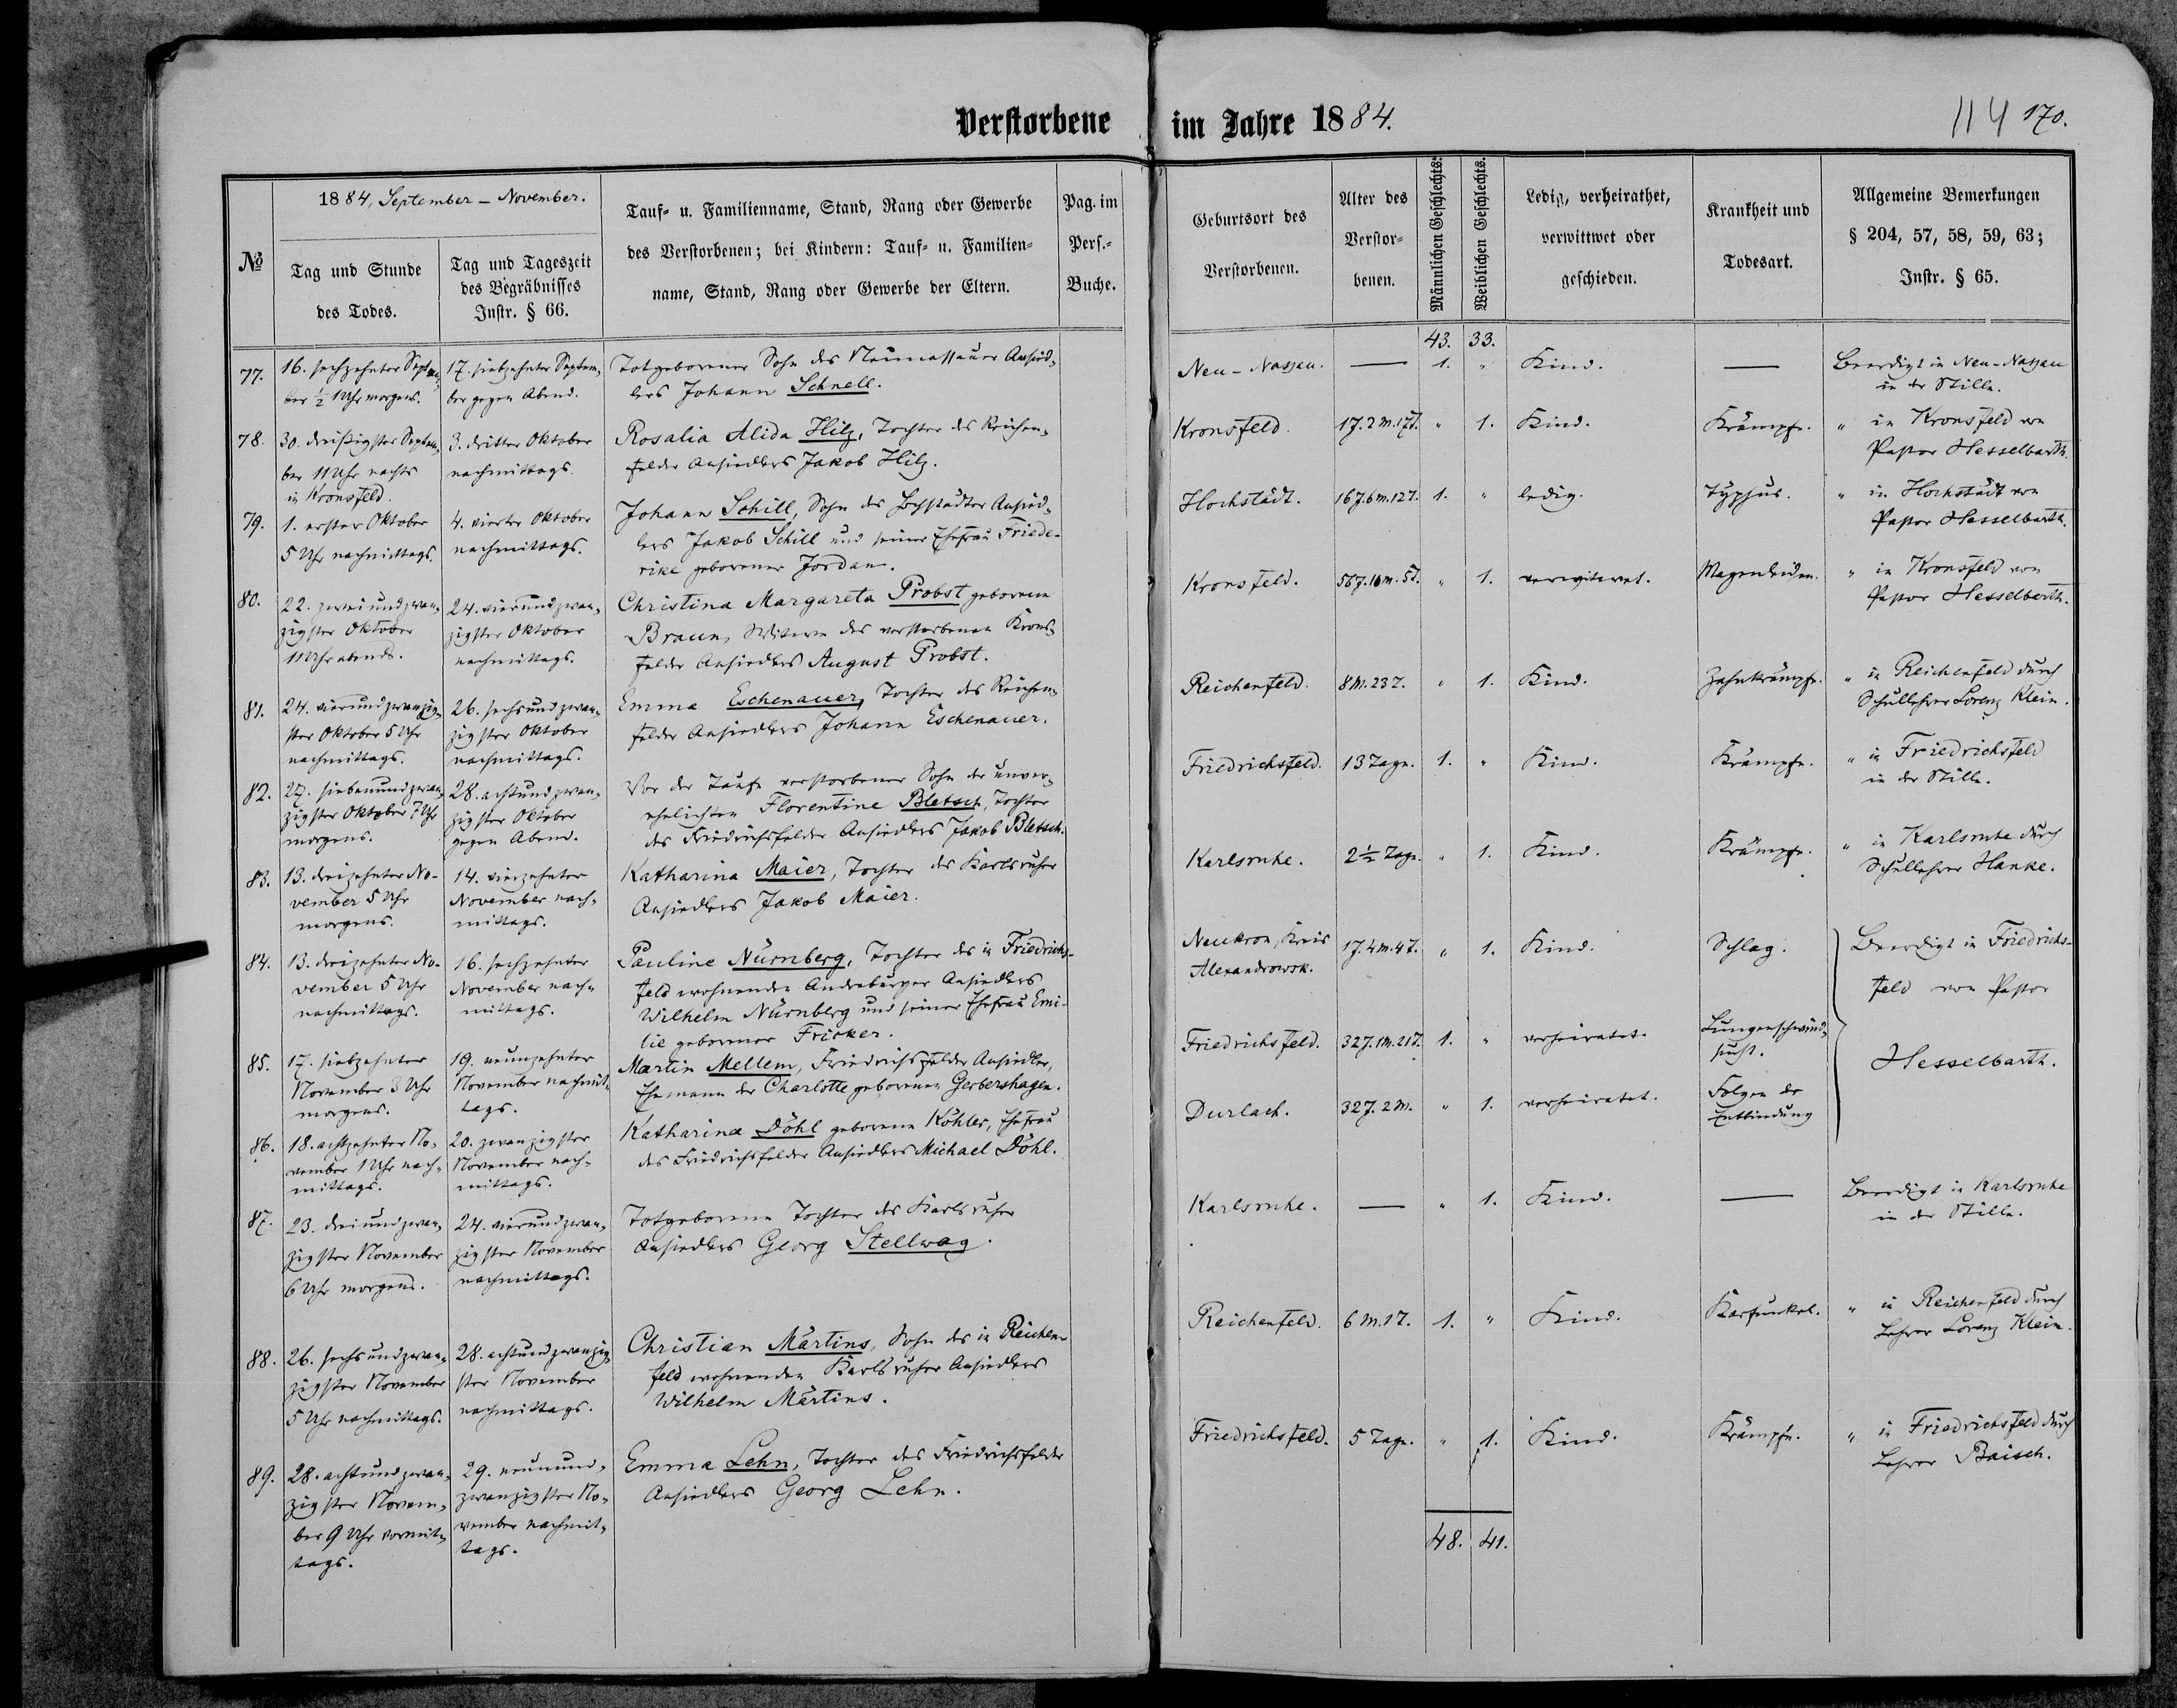 Verstorbene im Jahre 1884.
114 170.
№
1884, September – November.
Tag und Stunde
des Todes.
Tag und Tageszeit
des Begräbnisses
Instr. § 66.
Tauf- u. Familienname, Stand, Rang oder Gewerbe
des Verstorbenen; bei Kindern: Tauf- u. Familien-
name, Stand, Rang oder Gewerbe der Eltern.
Pag. im
Pers.-
Buche.
Geburtsort des
Verstorbenen.
Alter des
Verstor-
benen.
Männlichen Geschlechts.
Weiblichen Geschlechts.
Ledig, verheirathet,
verwittwet oder
geschieden.
Krankheit und
Todesart.
Allgemeine Bemerkungen
§ 204, 57, 58, 59, 63;
Instr. § 65.
43. 33.
77.
16. sechzehnter Septem-
ber ½ 1 Uhr morgens.
17. siebzehnter Septem-
ber gegen Abend.
Totgeborener Sohn des Neunassauer Ansied-
lers Johann Schnell.
Neu-Nassau. — 1. " Kind. —
Beerdigt in Neu-Nassau
in der Stille.
78.
30. dreißigster Septem-
ber 11 Uhr nachts
in Kronsfeld.
3. dritter Oktober
nachmittags.
Rosalia Alida Hilz, Tochter des Reichen-
felder Ansiedlers Jakob Hilz.
Kronsfeld. 1J. 2M. 17T. " 1. Kind. Krämpfe.
" in Kronsfeld von
Pastor Hesselbarth.
79.
1. erster Oktober
5 Uhr nachmittags.
4. vierter Oktober
nachmittags.
Johann Schill, Sohn des Hochstädter Ansied-
lers Jakob Schill und seiner Ehefrau Friede-
rike geborener Jordan.
Hochstädt. 16J. 6M. 12T. 1. " ledig. Typhus.
" in Hochstädt von
Pastor Hesselbarth.
80.
22. zweiundzwan-
zigster Oktober
11 Uhr abends.
24. vierundzwan-
zigster Oktober
nachmittags.
Christina Margareta Probst geborene
Braun, Witwe des verstorbenen Krons-
felder Ansiedlers August Probst.
Kronsfeld. 56J. 10M. 5T. " 1. verwitwet. Magenleiden.
" in Kronsfeld von
Pastor Hesselbarth.
81.
24. vierundzwanzig-
ster Oktober 5 Uhr
nachmittags.
26. sechsundzwan-
zigster Oktober
nachmittags.
Emma Eschenauer, Tochter des Reichen-
felder Ansiedlers Johann Eschenauer.
Reichenfeld. 8M. 23T. " 1. Kind. Zahnkrämpfe.
" in Reichenfeld durch
Schullehrer Lorenz Klein.
82.
27. siebenundzwan-
zigster Oktober 7 Uhr
morgens.
28. achtundzwan-
zigster Oktober
gegen Abend.
Vor der Taufe verstorbener Sohn der unver-
ehelichten Florentine Bletsch, Tochter
des Friedrichsfelder Ansiedlers Jakob Bletsch.
Friedrichsfeld. 13 Tage. 1. " Kind. Krämpfe.
" in Friedrichsfeld
in der Stille.
83.
13. dreizehnter No-
vember 5 Uhr
morgens.
14. vierzehnter
November nach-
mittags.
Katharina Maier, Tochter des Karlsruher
Ansiedlers Jakob Maier.
Karlsruhe. 2½ Tage. " 1. Kind. Krämpfe.
" in Karlsruhe durch
Schullehrer Hanke.
84.
13. dreizehnter No-
vember 5 Uhr
nachmittags.
16. sechzehnter
November nach-
mittags.
Pauline Nürnberg, Tochter des in Friedrichs-
feld wohnenden Andreburger Ansiedlers
Wilhelm Nürnberg und seiner Ehefrau Emi-
lie geborener Fricker.
Neukron, Kreis
Alexandrowsk.
1J. 4M. 4T. " 1. Kind. Schlag.
Beerdigt in Friedrichs-
feld von Pastor
Hesselbarth.
85.
17. siebzehnter
November 3 Uhr
morgens.
19. neunzehnter
November nachmit-
tags.
Martin Mellem, Friedrichsfelder Ansiedler,
Ehemann der Charlotte geborenen Gerbershagen.
Friedrichsfeld. 32J. 1M. 21T. 1. " verheiratet.
Lungenschwind-
sucht.
86.
18. achtzehnter No-
vember 1 Uhr nach-
mittags.
20. zwanzigster
November nach-
mittags.
Katharina Döhl geborene Köhler, Ehefrau
des Friedrichsfelder Ansiedlers Michael Döhl.
Durlach. 32J. 2M. " 1. verheiratet.
Folgen der
Entbindung
87.
23. dreiundzwan-
zigster November
6 Uhr morgens.
24. vierundzwan-
zigster November
nachmittags.
Totgeborene Tochter des Karlsruher
Ansiedlers Georg Stellwag.
Karlsruhe. — " 1. Kind. —
Beerdigt in Karlsruhe
in der Stille.
88.
26. sechsundzwan-
zigster November
5 Uhr nachmittags.
28. achtundzwanzig-
ster November
nachmittags.
Christian Märtins, Sohn des in Reichen-
feld wohnenden Karlsruher Ansiedlers
Wilhelm Märtins.
Reichenfeld. 6M. 1T. 1. " Kind. Karfunkel.
" in Reichenfeld durch
Lehrer Lorenz Klein.
89.
28. achtundzwan-
zigster Novem-
ber 9 Uhr vormit-
tags.
29. neunund-
zwanzigster No-
vember nachmit-
tags.
Emma Lehn, Tochter des Friedrichsfelder
Ansiedlers Georg Lehn.
Friedrichsfeld. 5 Tage. " 1. Kind. Krämpfe.
" in Friedrichsfeld durch
Lehrer Baisch.
48. 41.